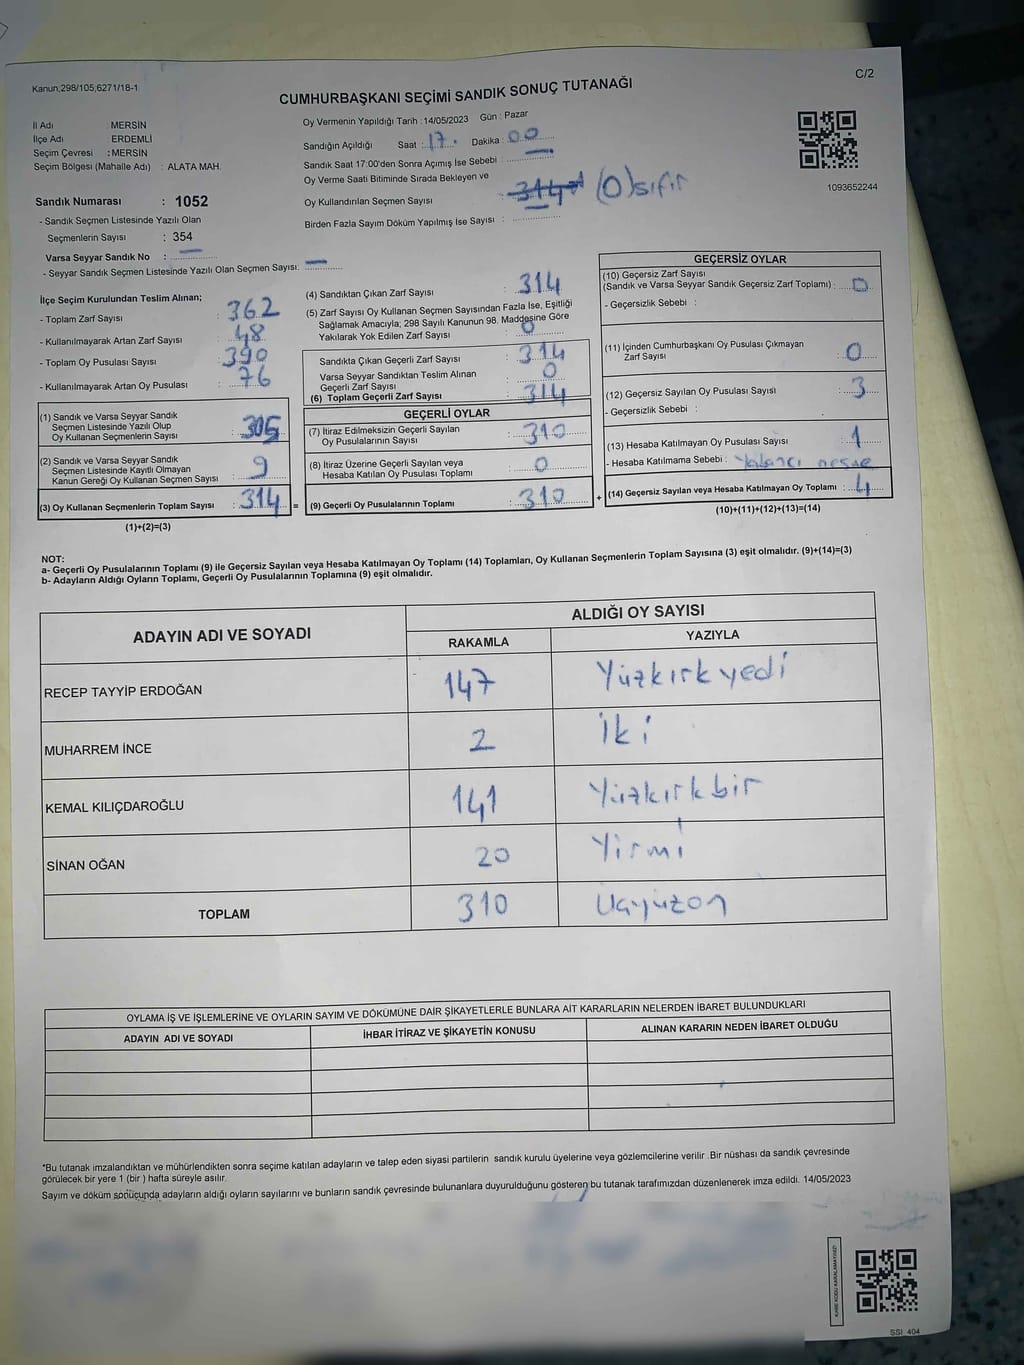 Kanun;298/105,6271/18-1
C/2
CUMHURBAŞKANI SEÇİMİ SANDIK SONUÇ TUTANAĞI
İl Adı : MERSİN
İlçe Adı : ERDEMLİ
Seçim Çevresi : MERSİN
Seçim Bölgesi (Mahalle Adı) : ALATA MAH.
Oy Vermenin Yapıldığı Tarih :14/05/2023 Gün : Pazar
Sandığın Açıldığı Saat : 17. Dakika : 00
Sandık Saat 17:00'den Sonra Açımış İse Sebebi : —
Oy Verme Saati Bitiminde Sırada Bekleyen ve
Oy Kullandırılan Seçmen Sayısı : 314 (0) sıfır
Birden Fazla Sayım Döküm Yapılmış İse Sayısı :
1093652244
Sandık Numarası : 1052
- Sandık Seçmen Listesinde Yazılı Olan
Seçmenlerin Sayısı : 354
Varsa Seyyar Sandık No : —
- Seyyar Sandık Seçmen Listesinde Yazılı Olan Seçmen Sayısı: —
İlçe Seçim Kurulundan Teslim Alınan;
- Toplam Zarf Sayısı : 362
- Kullanılmayarak Artan Zarf Sayısı : 48
- Toplam Oy Pusulası Sayısı : 390
- Kullanılmayarak Artan Oy Pusulası : 76
(1) Sandık ve Varsa Seyyar Sandık
Seçmen Listesinde Yazılı Olup
Oy Kullanan Seçmenlerin Sayısı : 305
(2) Sandık ve Varsa Seyyar Sandık
Seçmen Listesinde Kayıtlı Olmayan
Kanun Gereği Oy Kullanan Seçmen Sayısı : 9
(3) Oy Kullanan Seçmenlerin Toplam Sayısı : 314 =
(1)+(2)=(3)
(4) Sandıktan Çıkan Zarf Sayısı : 314
(5) Zarf Sayısı Oy Kullanan Seçmen Sayısından Fazla İse, Eşitliği
Sağlamak Amacıyla; 298 Sayılı Kanunun 98. Maddesine Göre
Yakılarak Yok Edilen Zarf Sayısı : 0
Sandıkta Çıkan Geçerli Zarf Sayısı : 314
Varsa Seyyar Sandıktan Teslim Alınan
Geçerli Zarf Sayısı : 0
(6) Toplam Geçerli Zarf Sayısı : 314
GEÇERLİ OYLAR
(7) İtiraz Edilmeksizin Geçerli Sayılan
Oy Pusulalarının Sayısı : 310
(8) İtiraz Üzerine Geçerli Sayılan veya
Hesaba Katılan Oy Pusulası Toplamı : 0
(9) Geçerli Oy Pusulalarının Toplamı : 310 +
GEÇERSİZ OYLAR
(10) Geçersiz Zarf Sayısı
(Sandık ve Varsa Seyyar Sandık Geçersiz Zarf Toplamı) : 0
- Geçersizlik Sebebi :
(11) İçinden Cumhurbaşkanı Oy Pusulası Çıkmayan
Zarf Sayısı : 0
(12) Geçersiz Sayılan Oy Pusulası Sayısı : 3
- Geçersizlik Sebebi :
(13) Hesaba Katılmayan Oy Pusulası Sayısı : 1
- Hesaba Katılmama Sebebi : Yabancı nesne
(14) Geçersiz Sayılan veya Hesaba Katılmayan Oy Toplamı : 4
(10)+(11)+(12)+(13)=(14)
NOT:
a- Geçerli Oy Pusulalarının Toplamı (9) ile Geçersiz Sayılan veya Hesaba Katılmayan Oy Toplamı (14) Toplamları, Oy Kullanan Seçmenlerin Toplam Sayısına (3) eşit olmalıdır. (9)+(14)=(3)
b- Adayların Aldığı Oyların Toplamı, Geçerli Oy Pusulalarının Toplamına (9) eşit olmalıdır.
ADAYIN ADI VE SOYADI
ALDIĞI OY SAYISI
RAKAMLA YAZIYLA
RECEP TAYYİP ERDOĞAN 147 Yüzkırkyedi
MUHARREM İNCE 2 iki
KEMAL KILIÇDAROĞLU 141 Yüzkırkbir
SİNAN OĞAN 20 Yirmi
TOPLAM 310 Üçyüzon
OYLAMA İŞ VE İŞLEMLERİNE VE OYLARIN SAYIM VE DÖKÜMÜNE DAİR ŞİKAYETLERLE BUNLARA AİT KARARLARIN NELERDEN İBARET BULUNDUKLARI
ADAYIN ADI VE SOYADI İHBAR İTİRAZ VE ŞİKAYETİN KONUSU ALINAN KARARIN NEDEN İBARET OLDUĞU
*Bu tutanak imzalandıktan ve mühürlendikten sonra seçime katılan adayların ve talep eden siyasi partilerin sandık kurulu üyelerine veya gözlemcilerine verilir .Bir nüshası da sandık çevresinde
görülecek bir yere 1 (bir ) hafta süreyle asılır.
Sayım ve döküm sonucunda adayların aldığı oyların sayılarını ve bunların sandık çevresinde bulunanlara duyurulduğunu gösteren bu tutanak tarafımızdan düzenlenerek imza edildi. 14/05/2023
KARE KODU KARALAMAYINIZ!
SSI_404